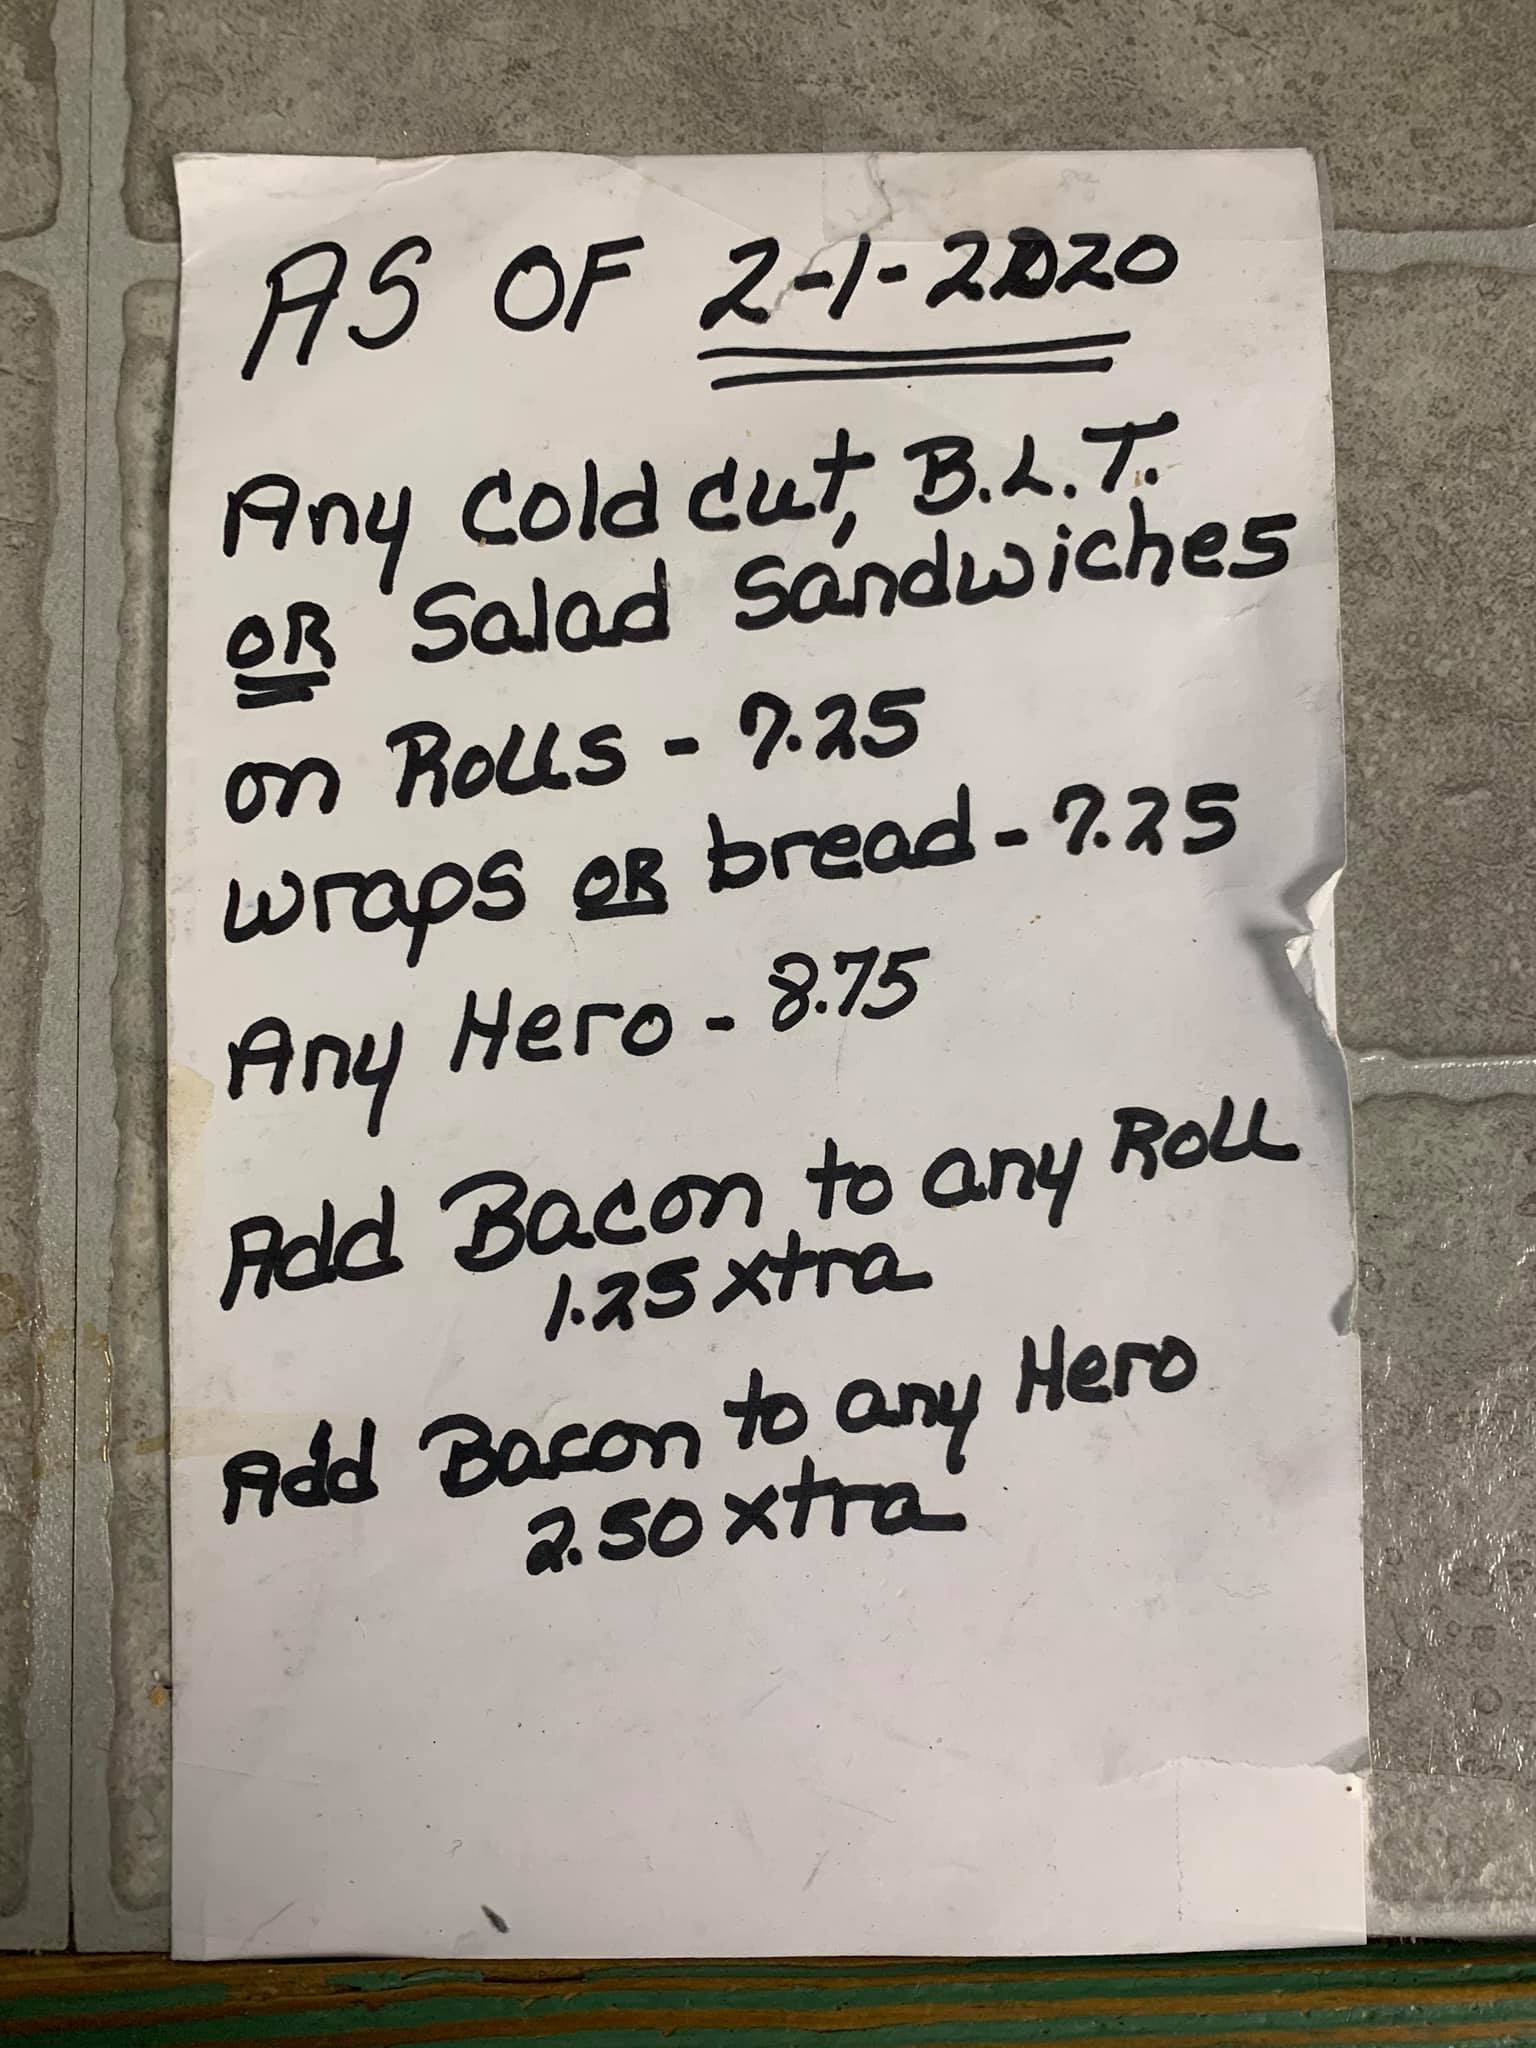 AS OF 2-1-2020
Any cold cut, B.L.T.
OR Salad Sandwiches
on Rolls - 7.25
wraps OR bread - 7.25
Any Hero - 8.75
Add Bacon to any Roll
1.25 xtra
Add Bacon to any Hero
2.50 xtra